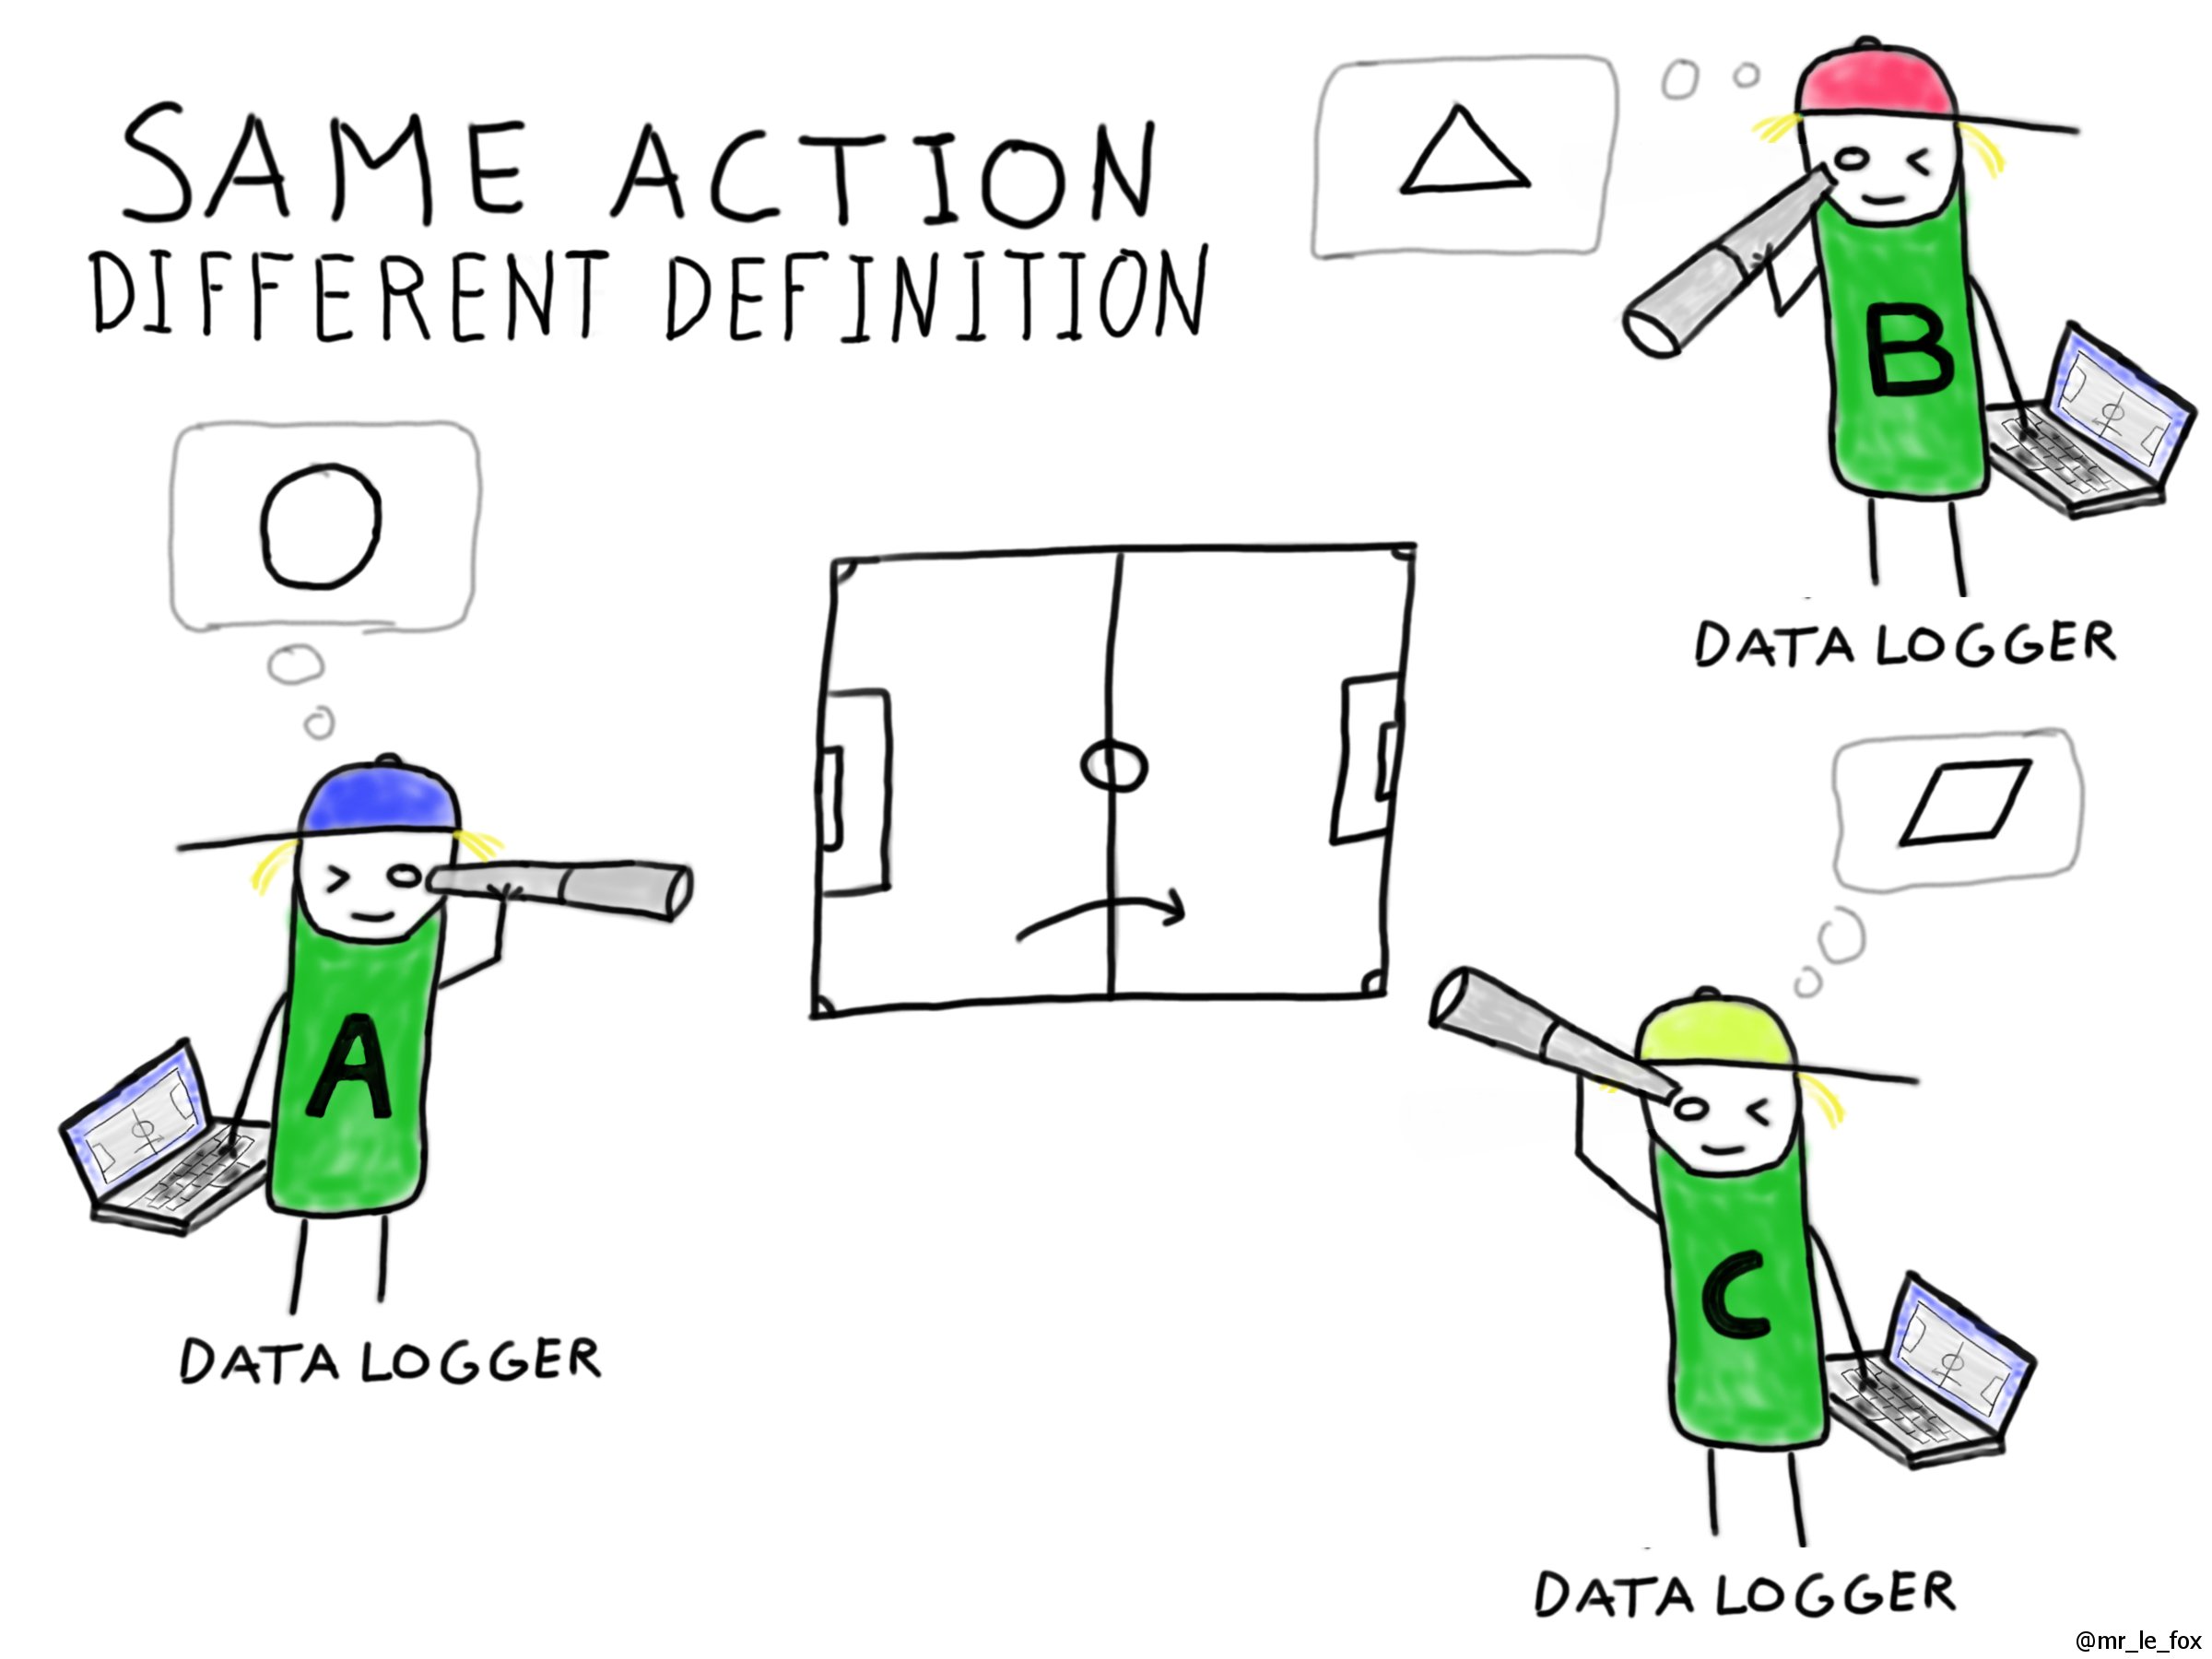 SAME ACTION
DIFFERENT DEFINITION
B
DATA LOGGER
A
DATA LOGGER
C
DATA LOGGER
@mr_le_fox